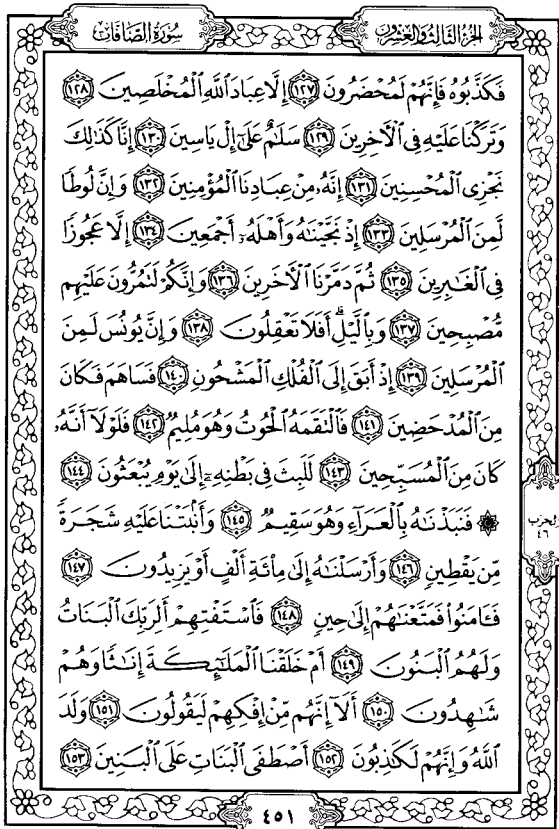 سُورَةُ الصَّافَّاتِ
الجُزْءُ الثَّالِثُ وَالْعِشْرُونَ
فَكَذَّبُوهُ فَإِنَّهُمْ لَمُحْضَرُونَ ١٢٧ إِلَّا عِبَادَ ٱللَّهِ ٱلْمُخْلَصِينَ ١٢٨
وَتَرَكْنَا عَلَيْهِ فِى ٱلْآخِرِينَ ١٢٩ سَلَٰمٌ عَلَىٰٓ إِلْ يَاسِينَ ١٣٠ إِنَّا كَذَٰلِكَ
نَجْزِى ٱلْمُحْسِنِينَ ١٣١ إِنَّهُۥ مِنْ عِبَادِنَا ٱلْمُؤْمِنِينَ ١٣٢ وَإِنَّ لُوطًا
لَّمِنَ ٱلْمُرْسَلِينَ ١٣٣ إِذْ نَجَّيْنَٰهُ وَأَهْلَهُۥٓ أَجْمَعِينَ ١٣٤ إِلَّا عَجُوزًا
فِى ٱلْغَٰبِرِينَ ١٣٥ ثُمَّ دَمَّرْنَا ٱلْآخَرِينَ ١٣٦ وَإِنَّكُمْ لَتَمُرُّونَ عَلَيْهِم
مُّصْبِحِينَ ١٣٧ وَبِٱلَّيْلِ ۗ أَفَلَا تَعْقِلُونَ ١٣٨ وَإِنَّ يُونُسَ لَمِنَ
ٱلْمُرْسَلِينَ ١٣٩ إِذْ أَبَقَ إِلَى ٱلْفُلْكِ ٱلْمَشْحُونِ ١٤٠ فَسَاهَمَ فَكَانَ
مِنَ ٱلْمُدْحَضِينَ ١٤١ فَٱلْتَقَمَهُ ٱلْحُوتُ وَهُوَ مُلِيمٌ ١٤٢ فَلَوْلَآ أَنَّهُۥ
كَانَ مِنَ ٱلْمُسَبِّحِينَ ١٤٣ لَلَبِثَ فِى بَطْنِهِۦٓ إِلَىٰ يَوْمِ يُبْعَثُونَ ١٤٤
۞ فَنَبَذْنَٰهُ بِٱلْعَرَآءِ وَهُوَ سَقِيمٌ ١٤٥ وَأَنۢبَتْنَا عَلَيْهِ شَجَرَةً
مِّن يَقْطِينٍ ١٤٦ وَأَرْسَلْنَٰهُ إِلَىٰ مِا۟ئَةِ أَلْفٍ أَوْ يَزِيدُونَ ١٤٧
فَـَٔامَنُوا۟ فَمَتَّعْنَٰهُمْ إِلَىٰ حِينٍ ١٤٨ فَٱسْتَفْتِهِمْ أَلِرَبِّكَ ٱلْبَنَاتُ
وَلَهُمُ ٱلْبَنُونَ ١٤٩ أَمْ خَلَقْنَا ٱلْمَلَٰٓئِكَةَ إِنَٰثًا وَهُمْ
شَٰهِدُونَ ١٥٠ أَلَآ إِنَّهُم مِّنْ إِفْكِهِمْ لَيَقُولُونَ ١٥١ وَلَدَ
ٱللَّهُ وَإِنَّهُمْ لَكَٰذِبُونَ ١٥٢ أَصْطَفَى ٱلْبَنَاتِ عَلَى ٱلْبَنِينَ ١٥٣
الحزب
٤٦
٤٥١